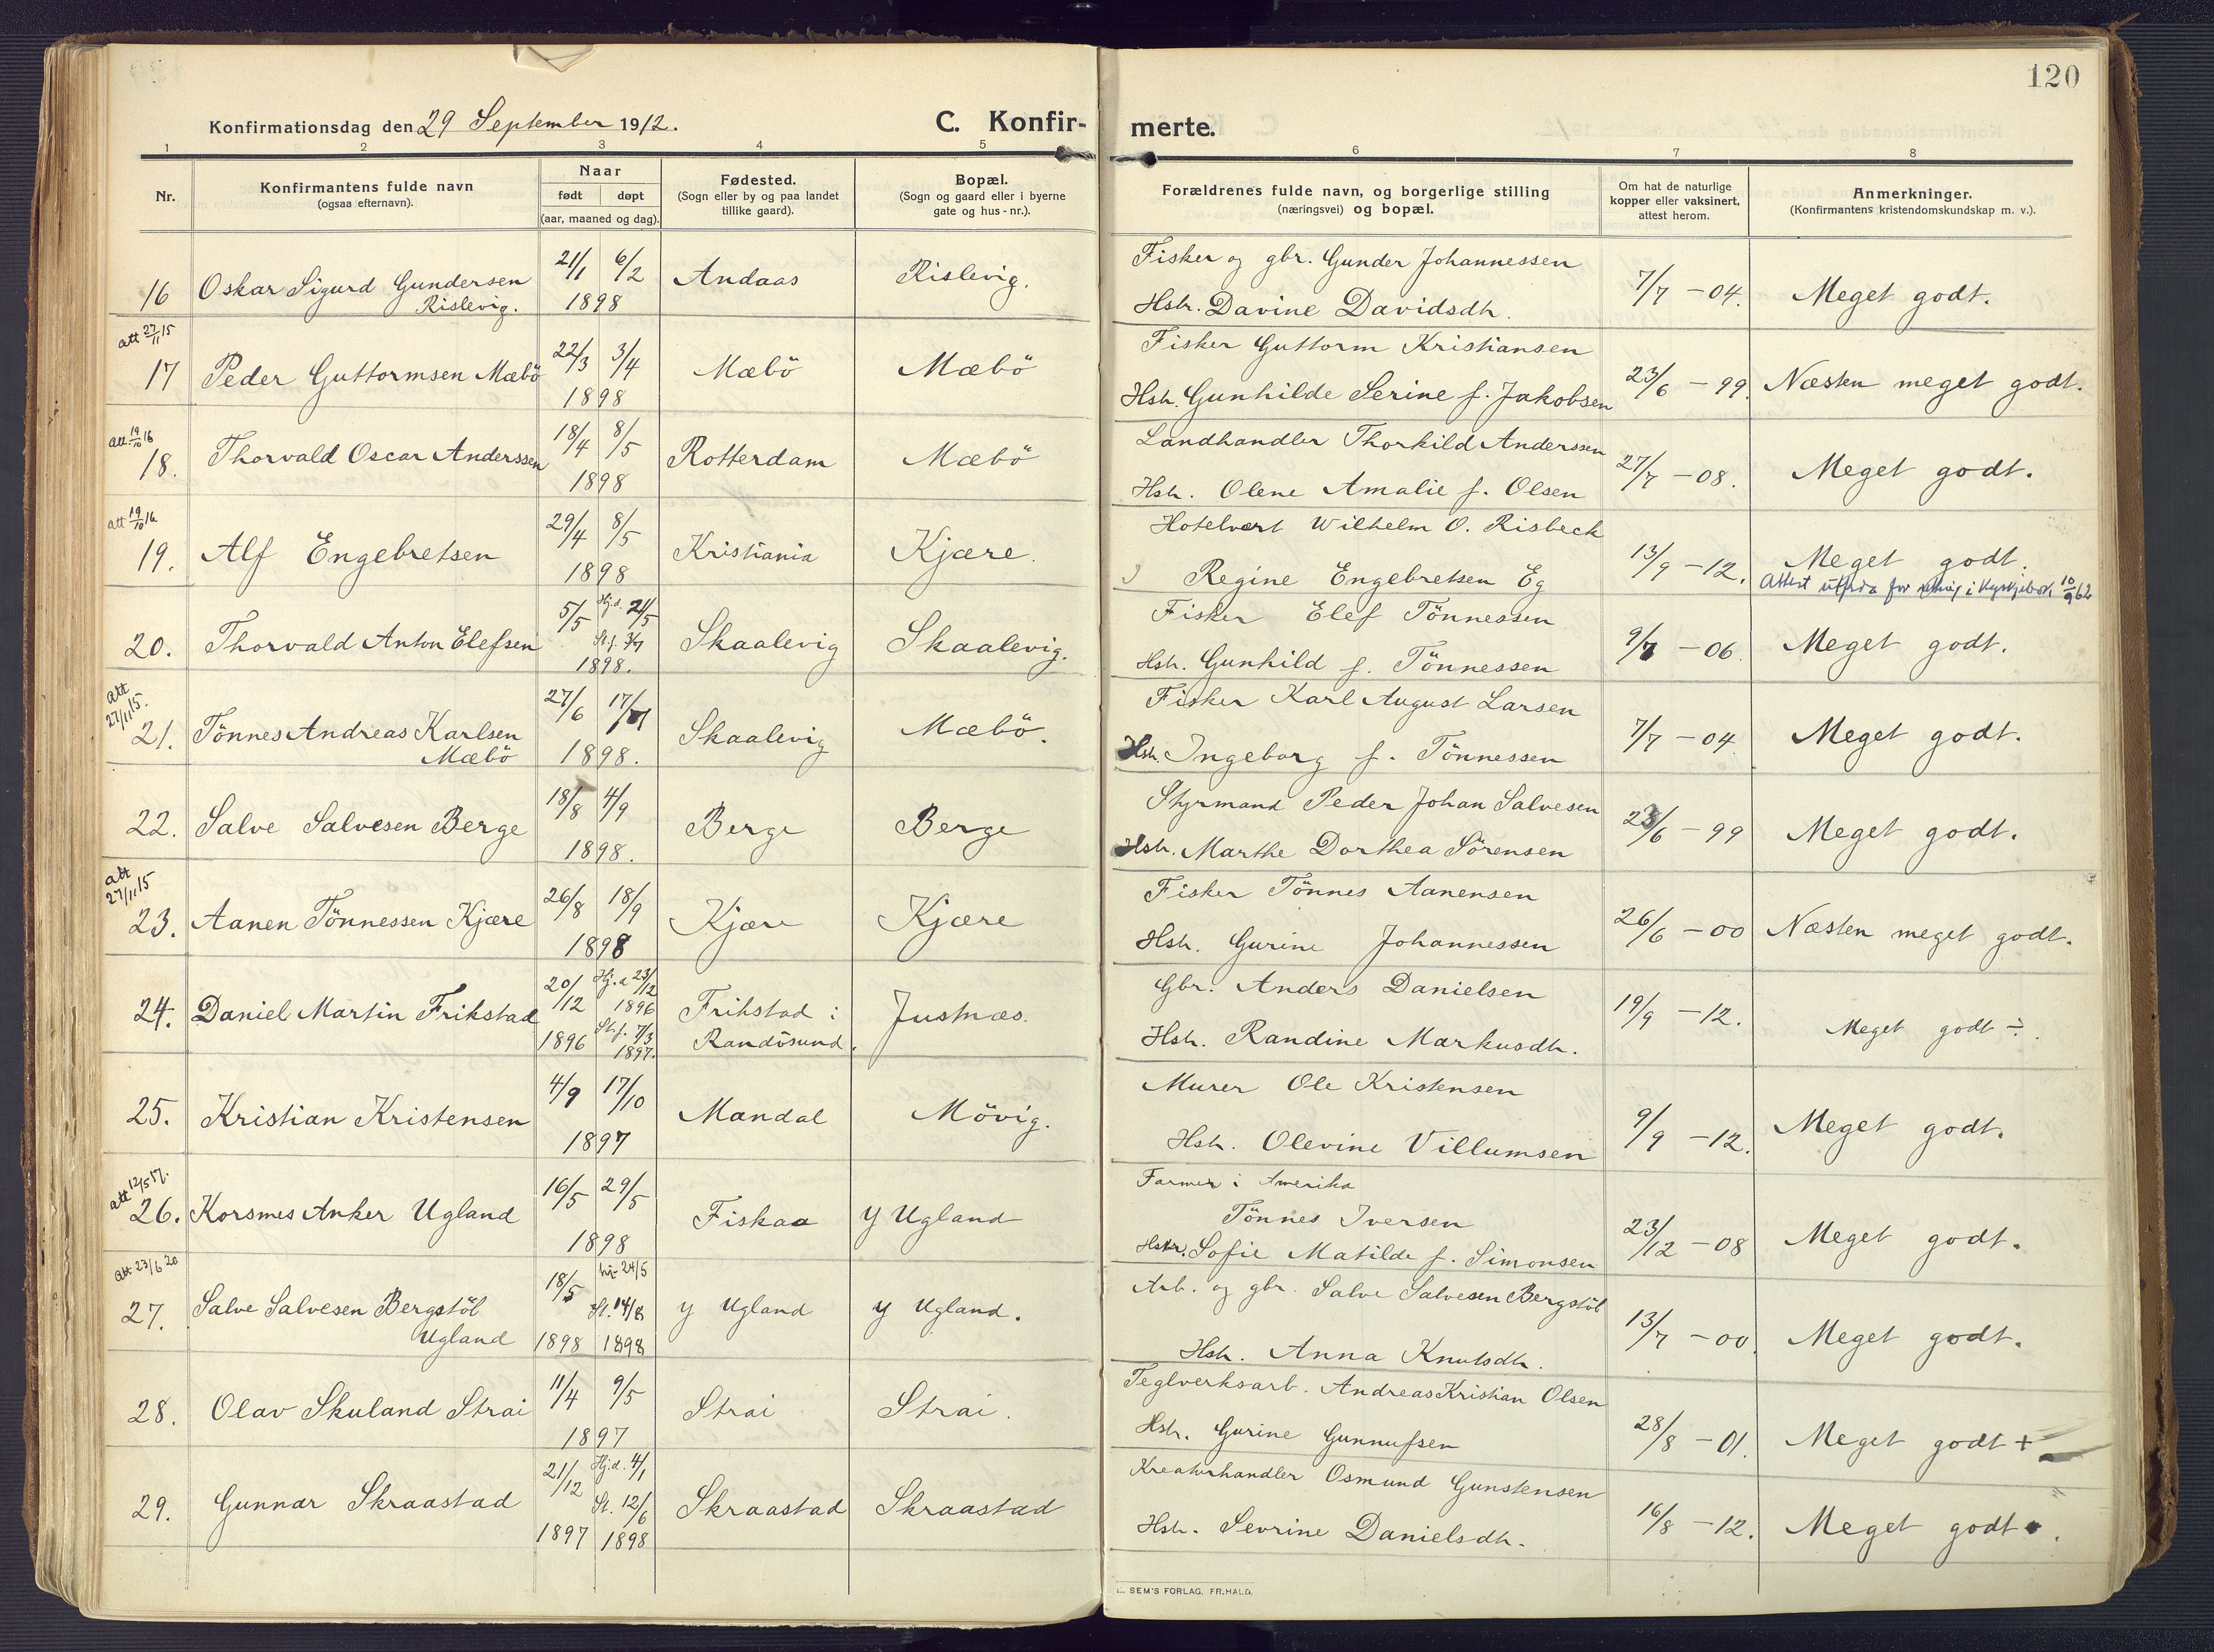 120
Konfirmationsdag den 29 September 1912.
C. Konfirmerte.
1 2 3 4 5 6 7 8
Nr.
Konfirmantens fulde navn
(ogsaa efternavn).
Naar
født døpt
(aar, maaned og dag).
Fødested.
(Sogn eller by og paa landet
tillike gaard).
Bopæl.
(Sogn og gaard eller i byerne
gate og hus-nr.).
Forældrenes fulde navn, og borgerlige stilling
(næringsvei) og bopæl.
Om hat de naturlige
kopper eller vaksinert,
attest herom.
Anmerkninger.
(Konfirmantens kristendomskundskap m. v.).
16 Oskar Sigurd Gundersen
Rislevig.
21/1 6/2
1898
Andaas
Rislevig.
Fisker og gbr. Gunder Johannessen
Hstr. Davine Davidsdtr.
7/7 - 04.
Meget godt.
att 27/11 15
17 Peder Guttormsen Mæbö
22/3 3/4
1898
Mæbö
Mæbö
Fisker Guttorm Kristiansen
Hstr. Gunhilde Serine f. Jakobsen
23/6 - 99.
Næsten meget godt.
att. 19/10 16
18. Thorvald Oscar Anderssen
18/4 8/5
1898
Rotterdam
Mæbö
Landhandler Thorkild Anderssen
Hstr. Olene Amalie f. Olsen
27/7 - 08.
Meget godt.
att 19/10 16
19. Alf Engebretsen
29/4 8/5
1898
Kristiania
Kjære.
Hotelvært Wilhelm O. Risbeck
Regine Engebretsen Eg
13/9 - 12.
Meget godt.
Attest 10/9 62
20. Thorvald Anton Elefsen
5/5 Hj.d. 21/5
St.f. 3/7
1898.
Skaalevig
Skaalevig.
Fisker Elef Tönnessen
Hstr. Gunhild f. Tönnessen
9/7 - 06.
Meget godt.
Att
27/11 15.
21. Tönnes Andreas Karlsen
Mæbö
27/6 17/7
1898.
Skaalevig
Mæbö.
Fisker Karl August Larsen
Hstr. Ingeborg f. Tönnessen
7/7 - 04.
Meget godt.
22. Salve Salvesen Berge
18/8 4/9
1898.
Berge
Berge
Styrmand Peder Johan Salvesen
Hstr. Marthe Dorthea Sörensen
23/6 - 99
Meget godt.
att
27/11 15
23. Aanen Tönnessen Kjære
26/8 18/9
1898
Kjære
Kjære
Fisker Tönnes Aanensen
Hstr. Gurine Johannessen
26/6 - 00
Næsten meget godt.
24. Daniel Martin Frikstad
20/12 Hj.d 23/12
1896
St.f. 7/3
1896 1897.
Frikstad i
Randösund.
Justnæs.
Gbr. Anders Danielsen
Hstr. Randine Markusdtr.
19/9 - 12.
Meget godt ÷.
25. Kristian Kristensen
4/9 17/10
1897
Mandal
Mövig.
Murer Ole Kristensen
Hstr. Olevine Villumsen
9/9 - 12.
Meget godt.
att 12/5 17.
26. Korsmes Anker Ugland
16/5 29/5
1898
Fiskaa
Y Ugland
Farmer i Amerika
Tönnes Iversen
Hstr. Sofie Matilde f. Simonsen
23/12 - 08
Meget godt.
Att 23/6 20
27. Salve Salvesen Bergstöl
Ugland
18/5 hj. 24/5
St. 14/8
1898 1898
Y Ugland
Y Ugland.
Arb. og gbr. Salve Salvesen Bergstöl
Hstr. Anna Knutsdtr.
13/7 - 00.
Meget godt.
28. Olav Skuland Strai
11/4 9/5
1897
Strai
Strai.
Teglverksarb. Andreas Kristian Olsen
Hstr. Gurine Gunnufsen
28/8 - 01.
Meget godt +
29. Gunnar Skraastad
21/12 Hj.d. 4/1
St. 12/6
1897 1898
Skraastad
Skraastad
Kreaturhandler Osmund Gunstensen
Hstr. Sevrine Danielsdtr.
16/8 - 12.
Meget godt.
SEM'S FORLAG, FR.HALD.